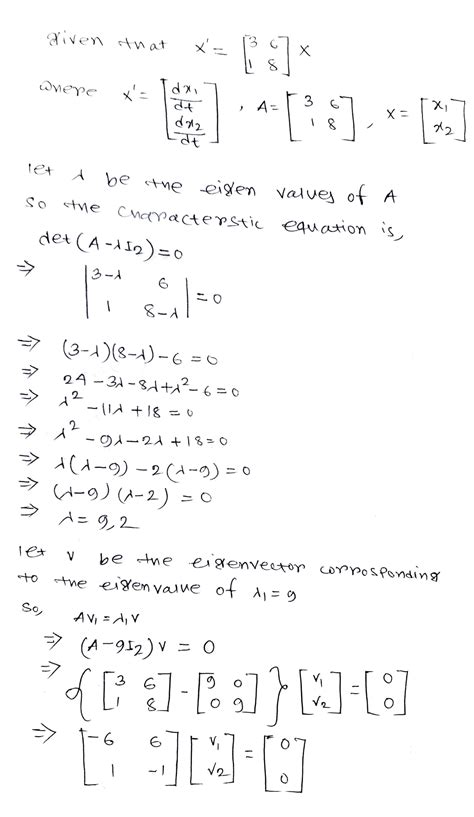 given that x' = [3 6; 1 8] x
where x' = [dx₁/dt; dx₂/dt], A = [3 6; 1 8], x = [x₁; x₂]
let λ be the eigen values of A
so the characterstic equation is,
det(A-λI₂)=0
⇒ |3-λ 6; 1 8-λ| = 0
⇒ (3-λ)(8-λ)-6=0
⇒ 24-3λ-8λ+λ²-6=0
⇒ λ²-11λ+18=0
⇒ λ²-9λ-2λ+18=0
⇒ λ(λ-9)-2(λ-9)=0
⇒ (λ-9)(λ-2)=0
⇒ λ=9,2
let v be the eigenvector corrosponding
to the eigenvalue of λ₁=9
So,
Av₁=λ₁v
⇒ (A-9I₂)v=0
⇒ {[3 6; 1 8]-[9 0; 0 9]}[v₁; v₂]=[0; 0]
⇒ [-6 6; 1 -1][v₁; v₂]=[0; 0]